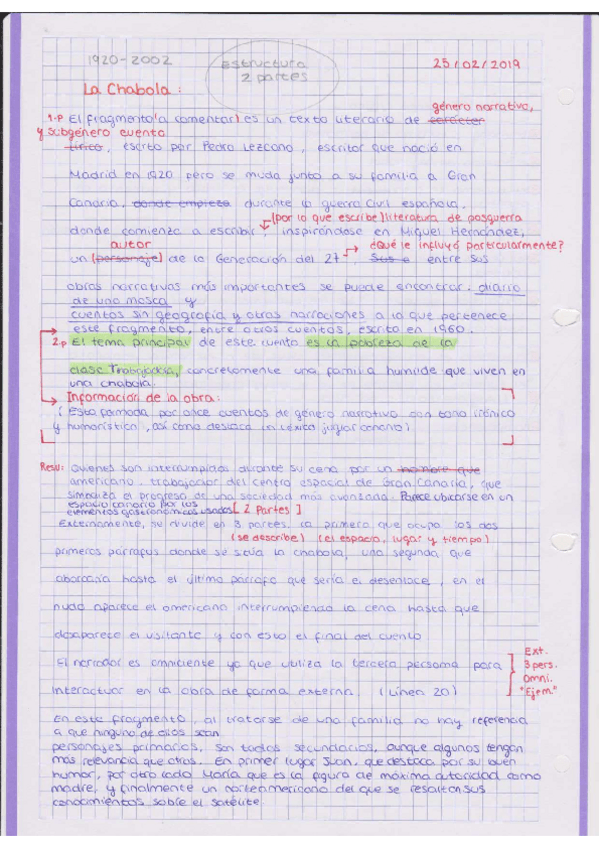 1920-2002
Estructura
2 partes
25/02/2019
La Chabola:
género narrativo,
1.p El fragmento (a comentar) es un texto literario de carácter
y subgénero cuento
lírico, escrito por Pedro Lezcano, escritor que nació en
Madrid en 1920 pero se muda junto a su familia a Gran
Canaria, donde empieza durante la guerra civil española.
(por lo que escribe) literatura de posguerra
donde comienza a escribir, inspirándose en Miguel Hernández,
autor
¿Qué le influyó particularmente?
un (personaje) de la Generación del 27. Sus o entre sus
obras narrativas más importantes se puede encontrar: diario
de una mosca y
cuentos sin geografía y otras narraciones a lo que pertenece
este fragmento, entre otros cuentos, escrito en 1960.
2.p El tema principal de este cuento es la pobreza de la
clase Trabajadora, concretamente una familia humilde que viven en
una chabola.
Información de la obra:
(Esta formada por once cuentos de género narrativo con tono irónico
y humorístico, así como destaca un léxico juglar canario)
Resu: Quienes son interrumpidos durante su cena por un hombre que
americano, trabajador del centro espacial de Gran Canaria, que
simboliza el progreso de una sociedad más avanzada. Parece ubicarse en un
espacio canario por los
elementos gastronómicos usados [2 Partes]
Externamente, se divide en 3 partes. La primera que ocupa los dos
(se describe) (el espacio, lugar y tiempo)
primeros párrafos donde se sitúa la chabola, una segunda que
abarcaría hasta el último párrafo que sería el desenlace, en el
nudo aparece el americano interrumpiendo la cena hasta que
desaparece el visitante y con esto el final del cuento
El narrador es omnisciente ya que utiliza la tercera persona para
interactuar en la obra de forma externa. (Línea 20)
Ext.
3 pers.
Omni.
"Ejem."
En este fragmento, al tratarse de una familia no hay referencia
a que ninguno de ellos sean
personajes primarios, son todos secundarios, aunque algunos tengan
más relevancia que otros. En primer lugar Juan, que destaca por su buen
humor, por otro lado María que es la figura de máxima autoridad como
madre, y finalmente un norteamericano del que se resaltan sus
conocimientos sobre el satélite.